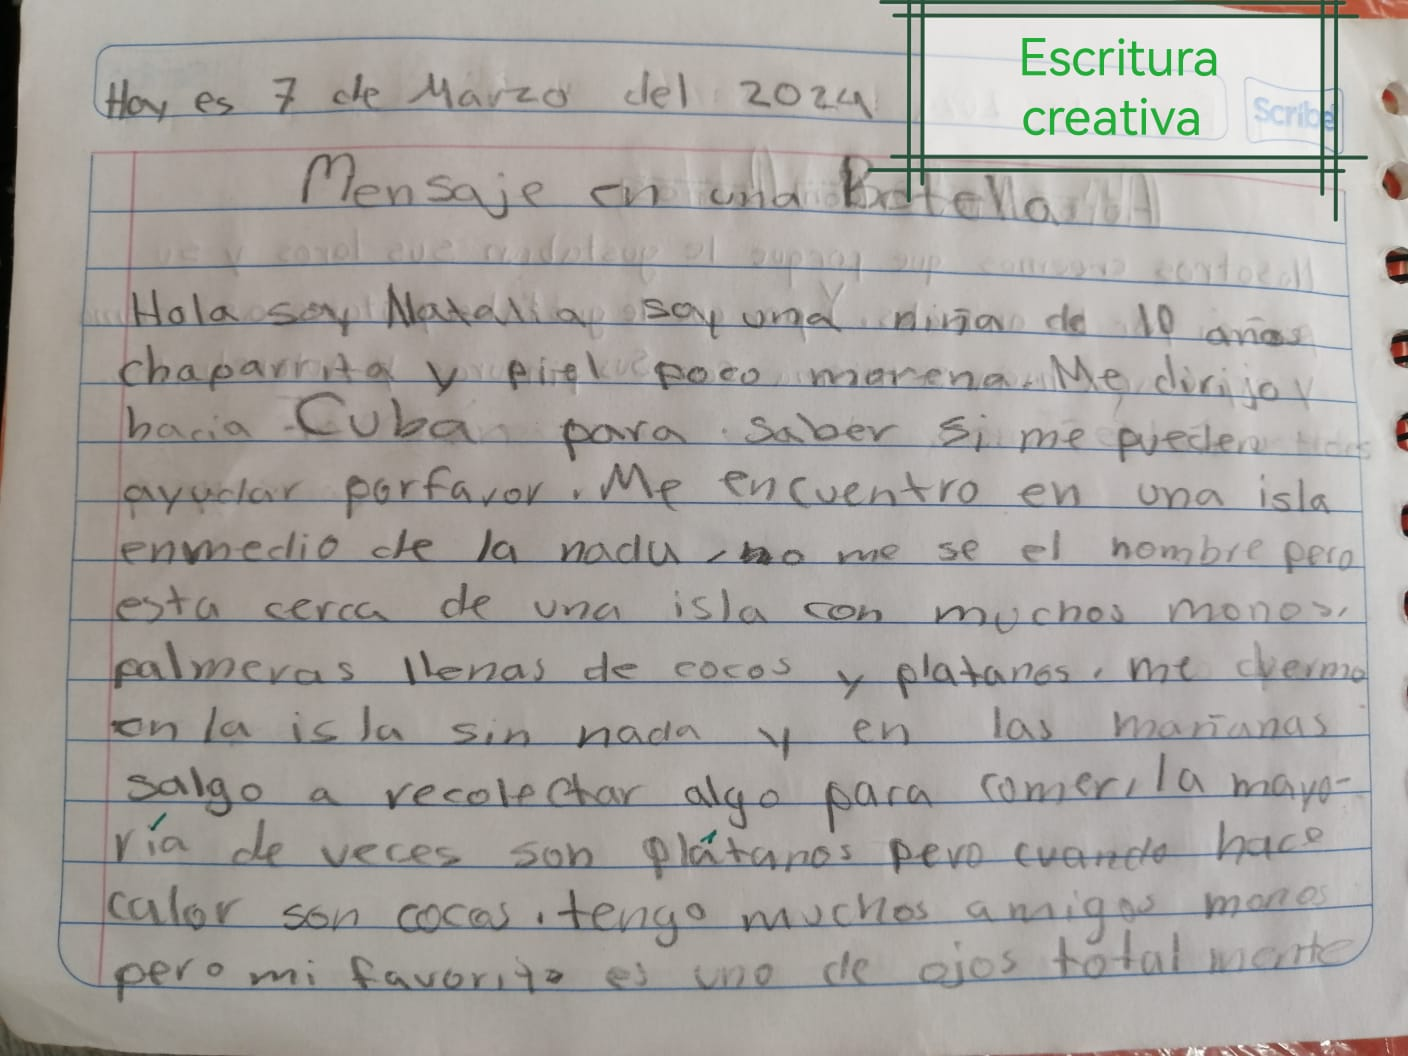 Escritura
creativa
Hoy es 7 de Marzo del 2024
Scribe
Mensaje en una Botella
Hola soy Natalia soy una niña de 10 años
chaparrita y piel poco morena. Me dirijo
hacia Cuba para saber si me pueden
ayudar porfavor. Me encuentro en una isla
enmedio de la nada, no me se el nombre pero
esta cerca de una isla con muchos monos,
palmeras llenas de cocos y platanos. me duermo
en la isla sin nada y en las mañanas
salgo a recolectar algo para comer, la mayo-
ría de veces son plátanos pero cuando hace
calor son cocos. tengo muchos amigos monos
pero mi favorito es uno de ojos totalmente